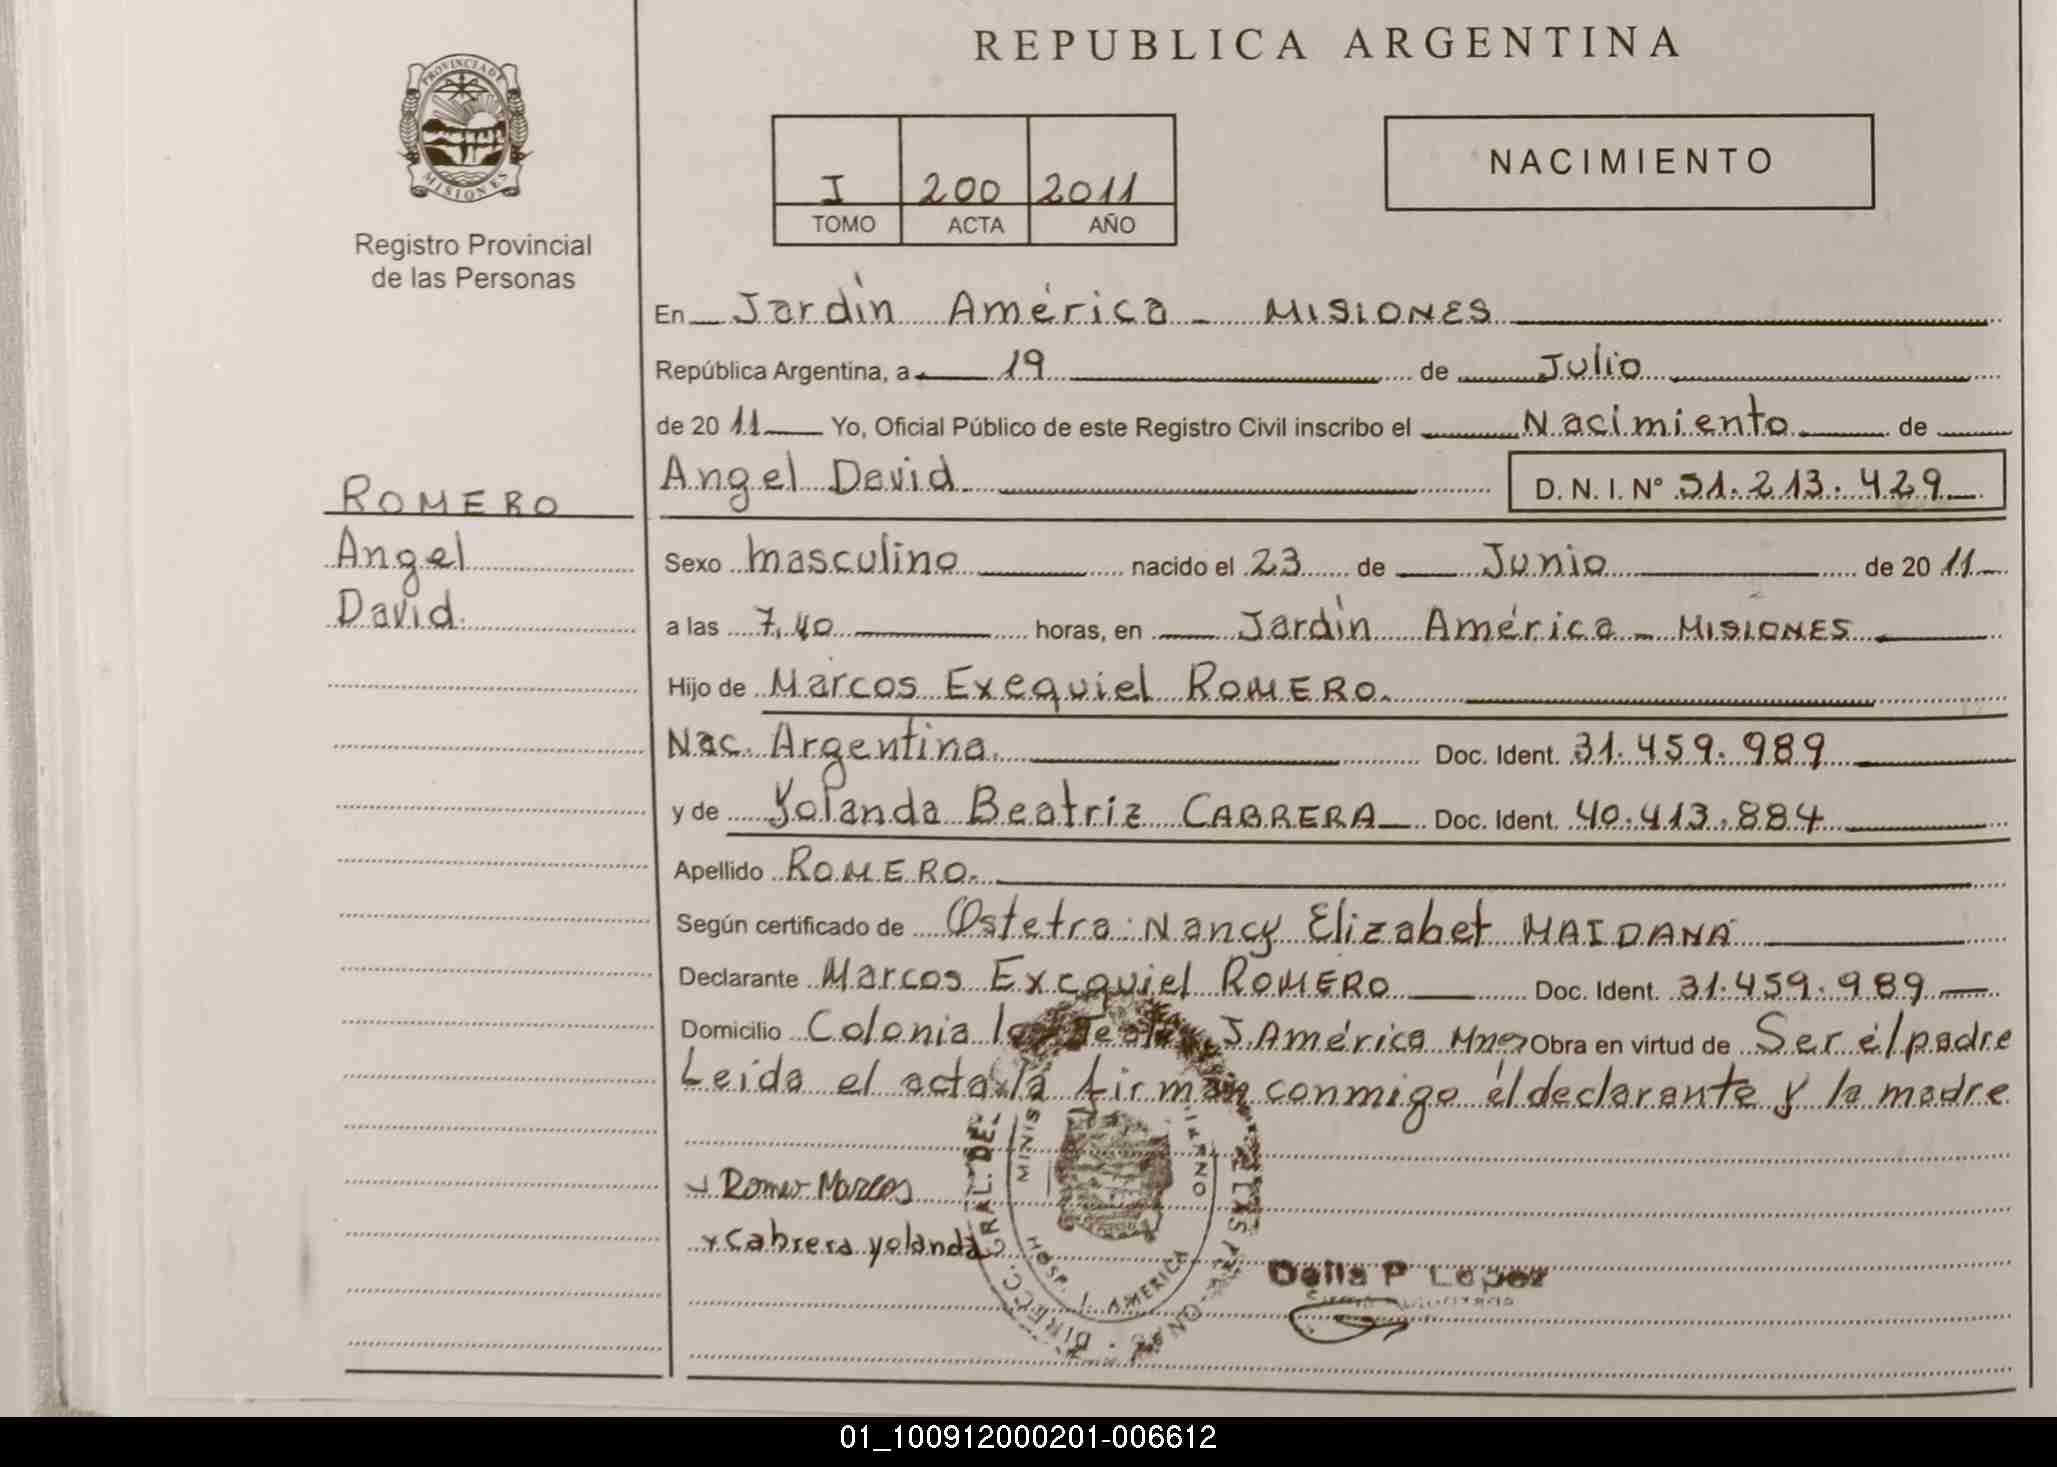 REPUBLICA ARGENTINA
PROVINCIA DE
MISIONES
Registro Provincial
de las Personas
I 200 2011
TOMO ACTA AÑO
NACIMIENTO
En Jardín América - MISIONES
República Argentina, a 19 de Julio
de 2011 Yo, Oficial Público de este Registro Civil inscribo el Nacimiento de
Angel David D. N. I. N° 51.213.429
ROMERO
Angel
David.
Sexo masculino nacido el 23 de Junio de 2011
a las 7,40 horas, en Jardín América - MISIONES
Hijo de Marcos Exequiel ROMERO.
Nac. Argentina. Doc. Ident. 31.459.989
y de Yolanda Beatriz CABRERA Doc. Ident. 40.413.884
Apellido ROMERO.
Según certificado de Ostetra: Nancy Elizabet MAIDANA
Declarante Marcos Exequiel ROMERO Doc. Ident. 31.459.989
Domicilio Colonia J. América Mnes Obra en virtud de Ser él padre
Leída el acta la firman conmigo él declarante y la madre
Romero Marcos
Cabrera yolanda
DIRECC. GRAL. DE
HOSP. J. AMERICA
Delia P Lopez
01_100912000201-006612